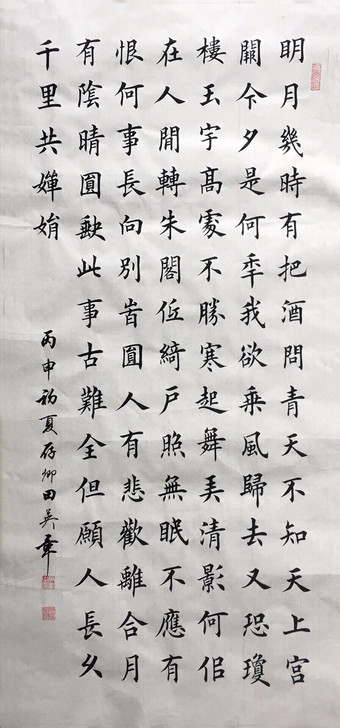 明月幾時有把酒問青天不知天上宮
闕今夕是何秊我欲乘風歸去又恐瓊
樓玉宇髙處不勝寒起舞弄清影何佀
在人間轉朱閣低綺戶照無眠不應有
恨何事長向別旹圓人有悲歡離合月
有陰晴圓缺此事古難全但願人長久
千里共嬋娟
丙申初夏存卿田英章